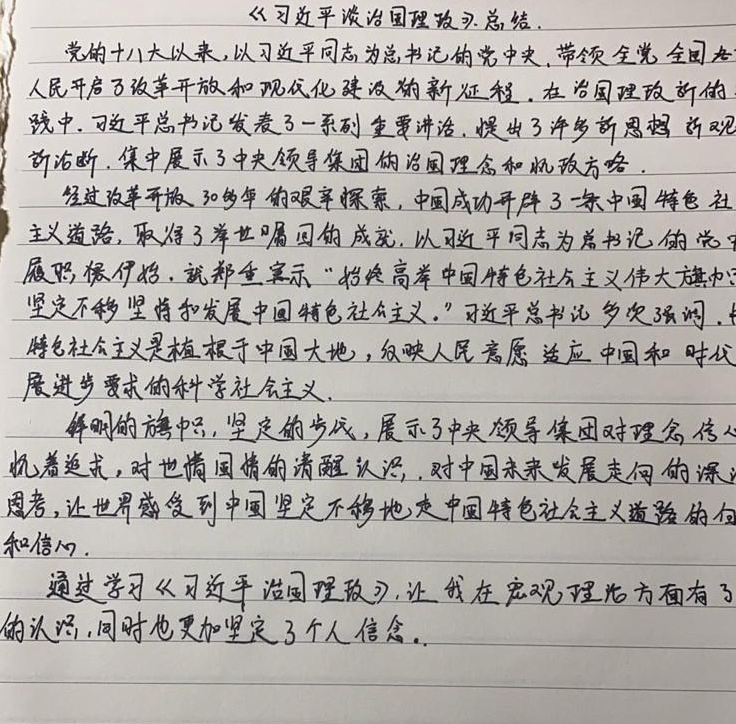 《习近平谈治国理政》总结.
党的十八大以来,以习近平同志为总书记的党中央,带领全党全国
人民开启了改革开放和现代化建设的新征程.在治国理政新的
践中.习近平总书记发表了一系列重要讲话.提出了许多新思想 新观
新论断.集中展示了中央领导集团的治国理念和执政方略.
经过改革开放30多年的艰辛探索,中国成功开辟了一条中国特色社
主义道路,取得了举世瞩目的成就.以习近平同志为总书记的党
履职伊始.就郑重宣示“始终高举中国特色社会主义伟大旗帜
坚定不移坚持和发展中国特色社会主义.”习近平总书记多次强调.
特色社会主义是植根于中国大地,反映人民意愿 适应中国和时代
展进步要求的科学社会主义.
鲜明的旗帜,坚定的步伐,展示了中央领导集团对理念信
执着追求,对世情国情的清醒认识.对中国未来发展走向的深
思考,让世界感受到中国坚定不移地走中国特色社会主义道路的
和信心.
通过学习《习近平治国理政》.让我在宏观理论方面有了
的认识,同时也更加坚定了个人信念..